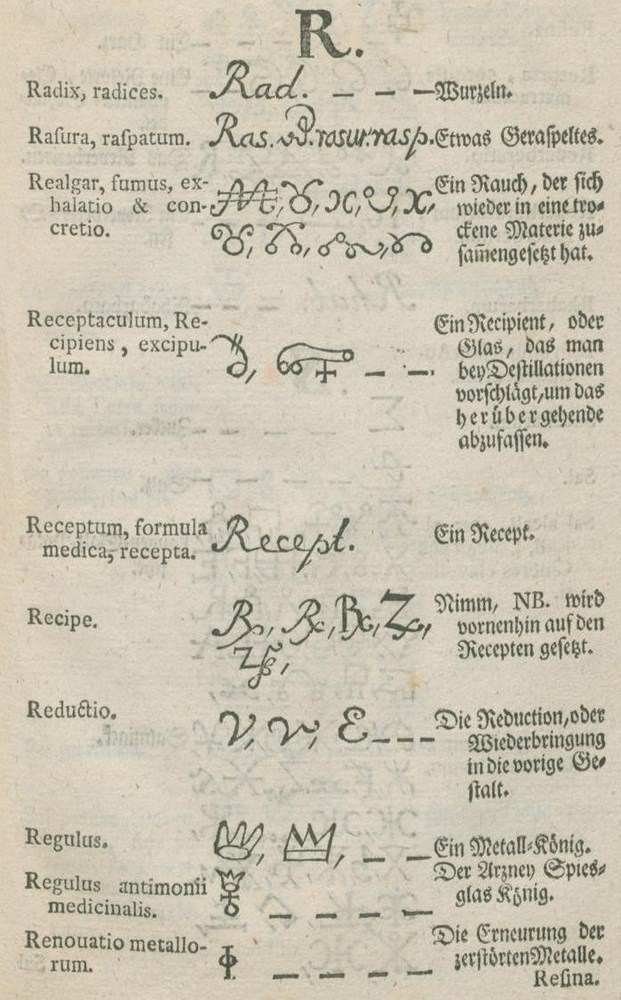 R.
Radix, radices. Rad. — — — Wurzeln.
Rasura, raspatum. Ras. rasur. rasp. Etwas Geraspeltes.
Realgar, fumus, ex- Ein Rauch, der sich
halatio & con- wieder in eine tro-
cretio. ckene Materie zu-
sam̄engesetzt hat.
Receptaculum, Re- Ein Recipient, oder
cipiens, excipu- Glas, das man
lum. — — bey Destillationen
vorschlägt, um das
herüber gehende
abzufassen.
Receptum, formula Recept. Ein Recept.
medica, recepta.
Recipe. Nimm, NB. wird
vornenhin auf den
Recepten gesetzt.
Reductio. — — — Die Reduction, oder
Wiederbringung
in die vorige Ge-
stalt.
Regulus. — — Ein Metall-König.
Regulus antimonii Der Arzney Spies-
medicinalis. — — — — glas König.
Renouatio metallo- Die Erneurung der
rum. — — — — zerstörten Metalle.
Resina.